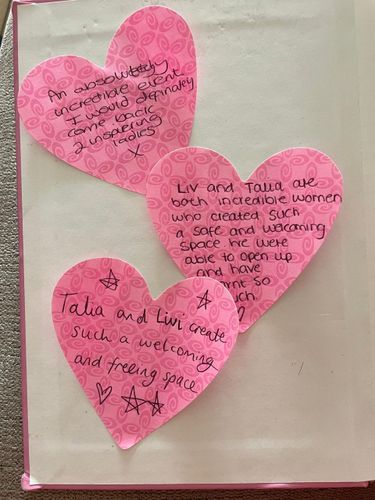 An absolutely
incredible event
I would definatley
come back
2 inspiring
ladies
X
Liv and Talia are
both incredible women
who created such
a safe and welcoming
space we were
able to open up
and have
rnt so
uch
Talia and Livi create
such a welcoming
and freeing space